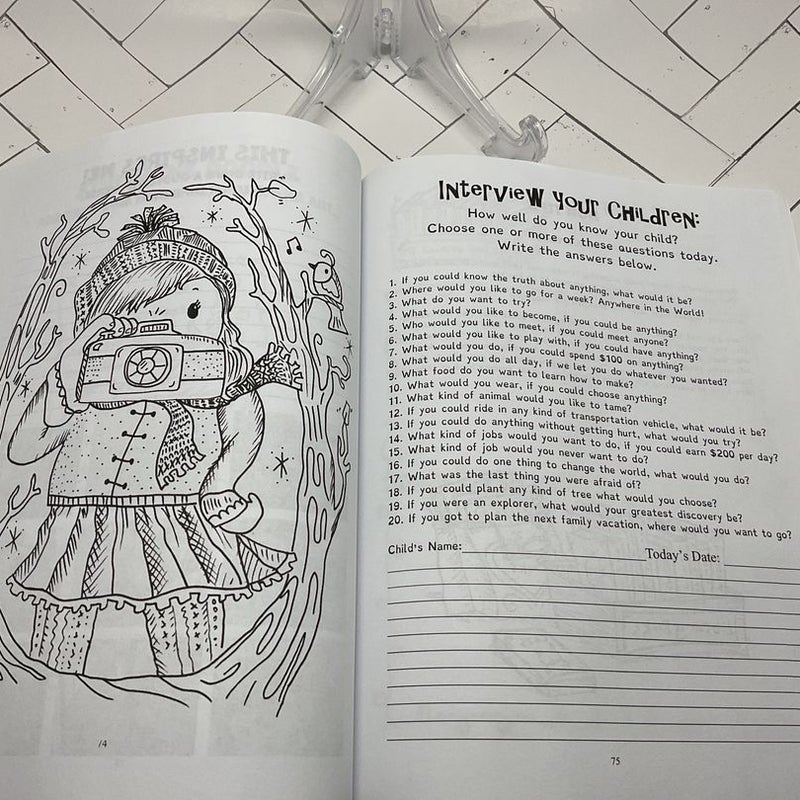 Interview Your Children:
How well do you know your child?
Choose one or more of these questions today.
Write the answers below.
1. If you could know the truth about anything, what would it be?
2. Where would you like to go for a week? Anywhere in the World!
3. What do you want to try?
4. What would you like to become, if you could be anything?
5. Who would you like to meet, if you could meet anyone?
6. What would you like to play with, if you could have anything?
7. What would you do, if you could spend $100 on anything?
8. What would you do all day, if we let you do whatever you wanted?
9. What food do you want to learn how to make?
10. What would you wear, if you could choose anything?
11. What kind of animal would you like to tame?
12. If you could ride in any kind of transportation vehicle, what would it be?
13. If you could do anything without getting hurt, what would you try?
14. What kind of jobs would you want to do, if you could earn $200 per day?
15. What kind of job would you never want to do?
16. If you could do one thing to change the world, what would you do?
17. What was the last thing you were afraid of?
18. If you could plant any kind of tree what would you choose?
19. If you were an explorer, what would your greatest discovery be?
20. If you got to plan the next family vacation, where would you want to go?
Child's Name: Today's Date:
74
75